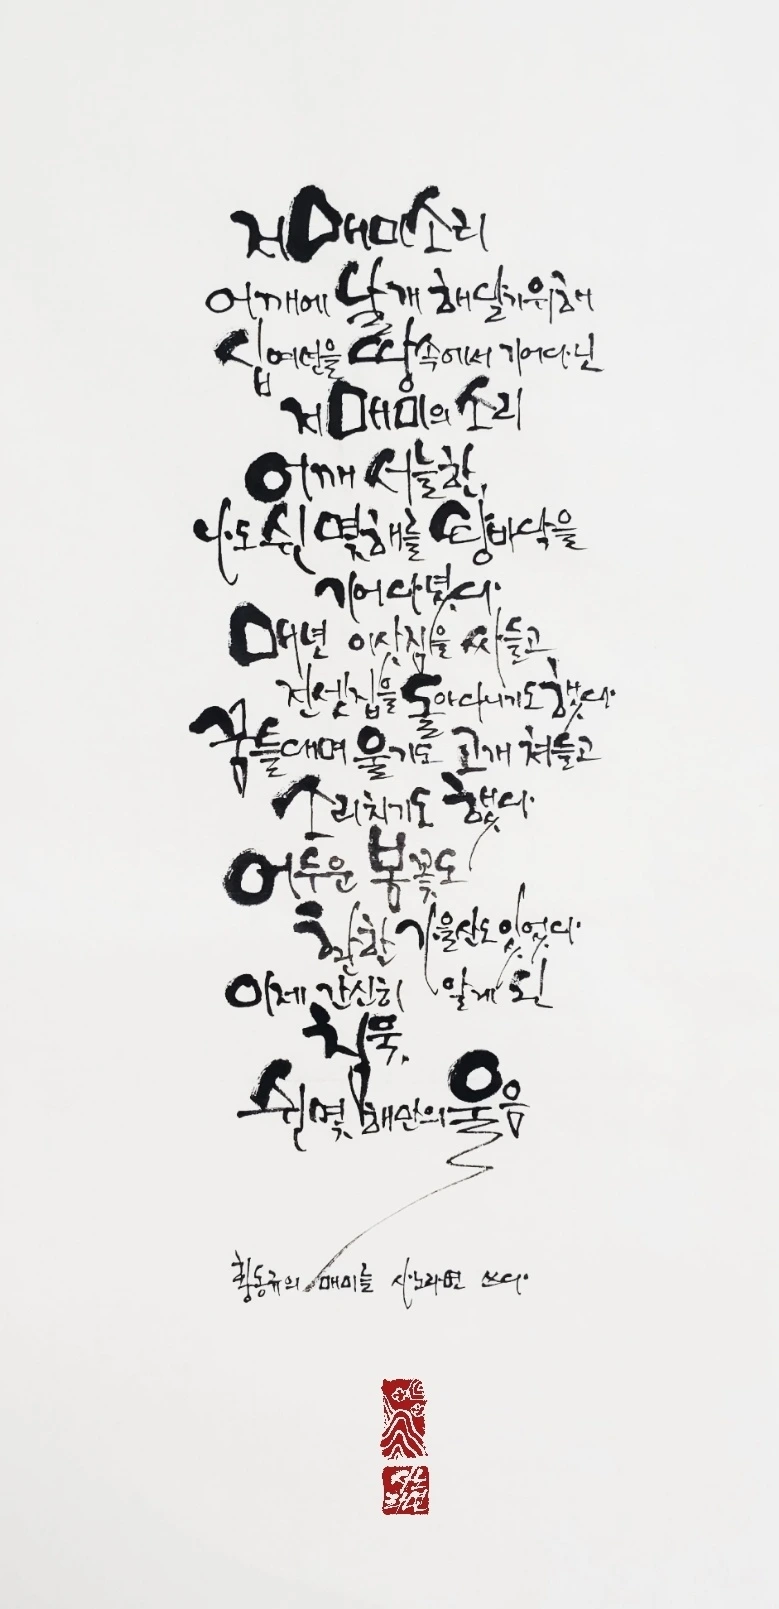 저 매미 소리
어깨에 날개 해 달기 위해
십여년을 땅 속에서 기어다닌
저 매미의 소리
어깨 서늘한,
나도 쉰 몇해를 땅바닥을
기어다녔다.
매년 이삿짐을 싸들고
전셋집을 돌아다니기도 했다.
꿈틀대며 울기도 고개 쳐들고
소리치기도 했다.
어두운 봄꽃도
환한 가을산도 있었다.
이제 간신히 알게 된
침묵,
쉰 몇 해만의 울음
황동규의 매미를 사노라면 쓰다.